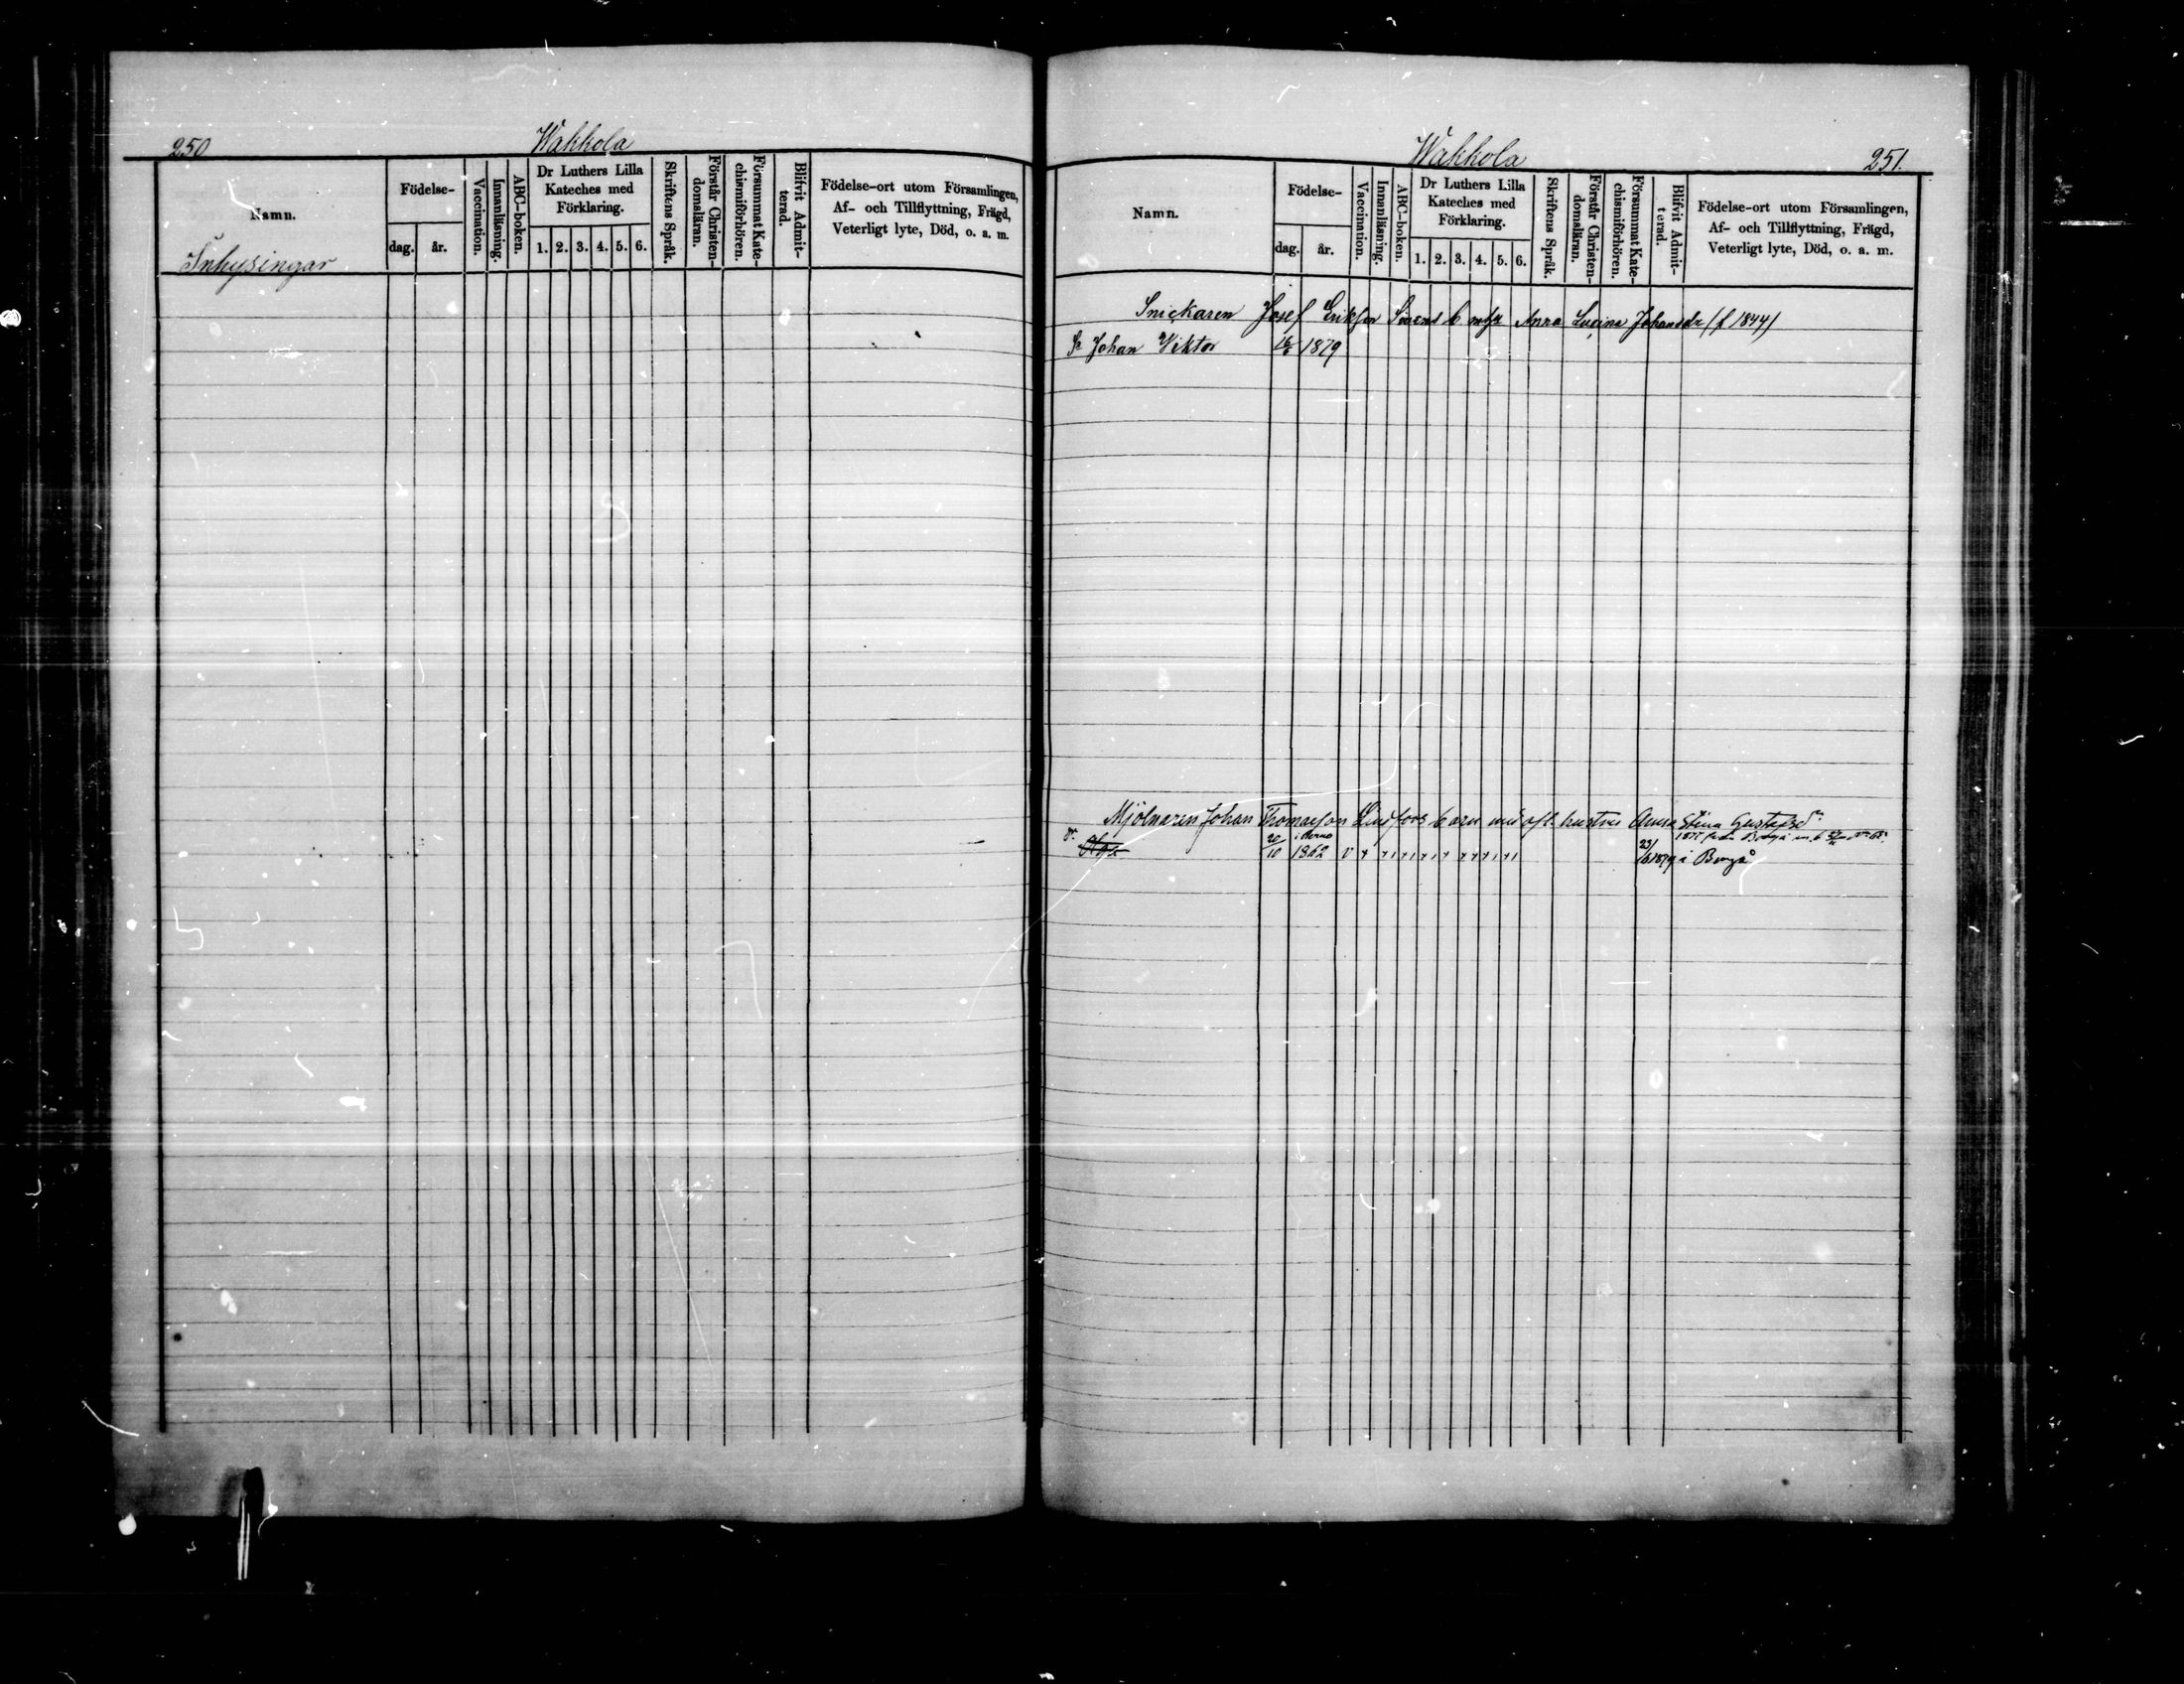 250
Wakkola
Namn.
Födelse-
dag.
år.
Vaccination.
Innanläsning.
ABC-boken.
Dr Luthers Lilla
Kateches med
Förklaring.
1. 2. 3. 4. 5. 6.
Skriftens Språk.
Förstår Christen-
domsläran.
Försummat Kate-
chismiförhören.
Blifvit Admit-
terad.
Födelse-ort utom Församlingen,
Af- och Tillflyttning, Frägd,
Veterligt lyte, Död, o. a. m.
Inhysingar
Wakkola
251.
Namn.
Födelse-
dag.
år.
Vaccination.
Innanläsning.
ABC-boken.
Dr Luthers Lilla
Kateches med
Förklaring.
1. 2. 3. 4. 5. 6.
Skriftens Språk.
Förstår Christen-
domsläran.
Försummat Kate-
chismiförhören.
Blifvit Admit-
terad.
Födelse-ort utom Församlingen,
Af- och Tillflyttning, Frägd,
Veterligt lyte, Död, o. a. m.
Snickaren Josef Erikson b m h Anna Lovina Johansdr (f 1844)
Sr Johan Viktor 1879
Mjölnaren Johan Thomasson Lindfors barn med afl. hustru Anna Stina Gustafsdr
20/10 1862 23/6 1879 i Borgå